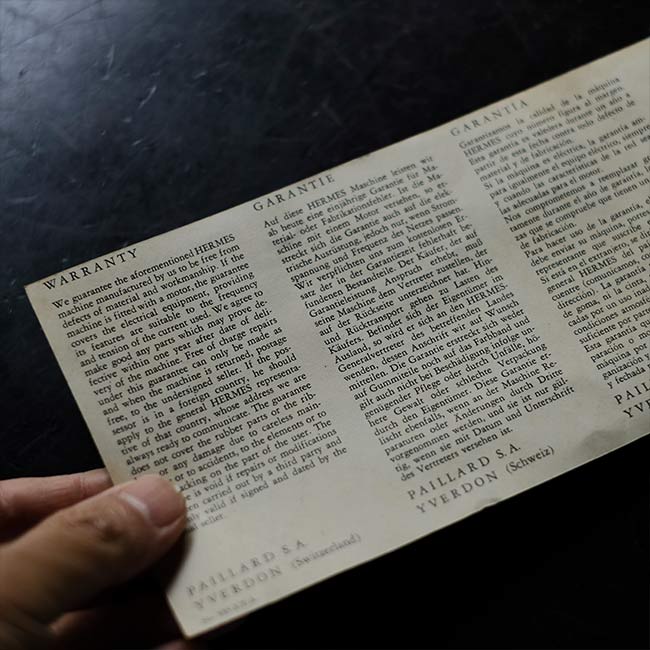 WARRANTY
We guarantee the aforementioned HERMES
machine manufactured by us to be free from
defects of material and workmanship. If the
machine is fitted with a motor, the guarantee
covers the electrical equipment, providing
its features are suitable to the frequency
and tension of the current used. We agree to
make good any parts which may prove de-
fective within one year after date of deli-
very of the machine. Free of charge repairs
under this guarantee can only be made as
and when the machine is returned, postage
free, to the undersigned seller. If the pos-
sessor is in a foreign country, he should
apply to the general HERMES representa-
tive of that country, whose address we are
always ready to communicate. The guarantee
does not cover the rubber parts or the rib-
or any damage due to careless main-
or to accidents, to the elements or
lacking on the part of the user. The
is void if repairs or modifications
been carried out by a third party and
only valid if signed and dated by the
seller.
PAILLARD S.A.
YVERDON (Switzerland)
GARANTIE
Auf diese HERMES Maschine leisten wir
ab heute eine einjährige Garantie für Ma-
terial- oder Fabrikationsfehler. Ist die Ma-
schine mit einem Motor versehen, so er-
streckt sich die Garantie auch auf die elek-
trische Ausrüstung, jedoch nur, wenn solche
Spannung und Frequenz des Netzes passen.
Wir verpflichten uns zum kostenlosen Er-
satz der in der Garantiezeit fehlerhaft be-
fundenen Bestandteile. Der Käufer, der auf
Garantieleistung Anspruch erhebt, muß
seine Maschine dem Vertreter zustellen, der
auf der Rückseite unterzeichnet hat. Hin-
und Rücktransport gehen zu Lasten des
Käufers. Befindet sich der Eigentümer im
Ausland, so wird er sich an den HERMES-
Generalvertreter des betreffenden Landes
wenden, dessen Anschrift wir auf Wunsch
mitteilen. Die Garantie erstreckt sich weder
auf Gummiteile noch auf das Farbband und
gilt auch nicht bei Beschädigung infolge un-
genügender Pflege oder durch Unfall, hö-
here Gewalt oder schlechte Behandlung
durch den Eigentümer. Diese Garantie er-
lischt ebenfalls, wenn an der Maschine Re-
paraturen oder Änderungen durch Dritte
vorgenommen werden, und sie ist nur gül-
tig, wenn sie mit Datum und Unterschrift
des Vertreters versehen ist.
PAILLARD S.A.
YVERDON (Schweiz)
GARANTIA
Garantizamos la calidad de la máquina
HERMES cuyo número figura al margen.
Esta garantía es valedera durante un año a
partir de esta fecha contra todo defecto de
material y de fabricación.
Si la máquina es eléctrica, la garantía am-
para igualmente el equipo eléctrico, siempre
y cuando las características de la red sean
adecuadas para el motor.
Nos comprometemos a reemplazar
durante el año de garantía,
que se compruebe que tienen un
de fabricación.
Para hacer uso de la garantía, el
debe enviar su máquina, porte
representante que suscribe
si está en el extranjero, el
general HERMES del
cuya (comunicamos
dirección). La garantía
de goma, ni la cinta,
cada por uso
condiciones
suficiente por parte
garantía
paración
ganización
gunda por
y fechada
PAILL
YV